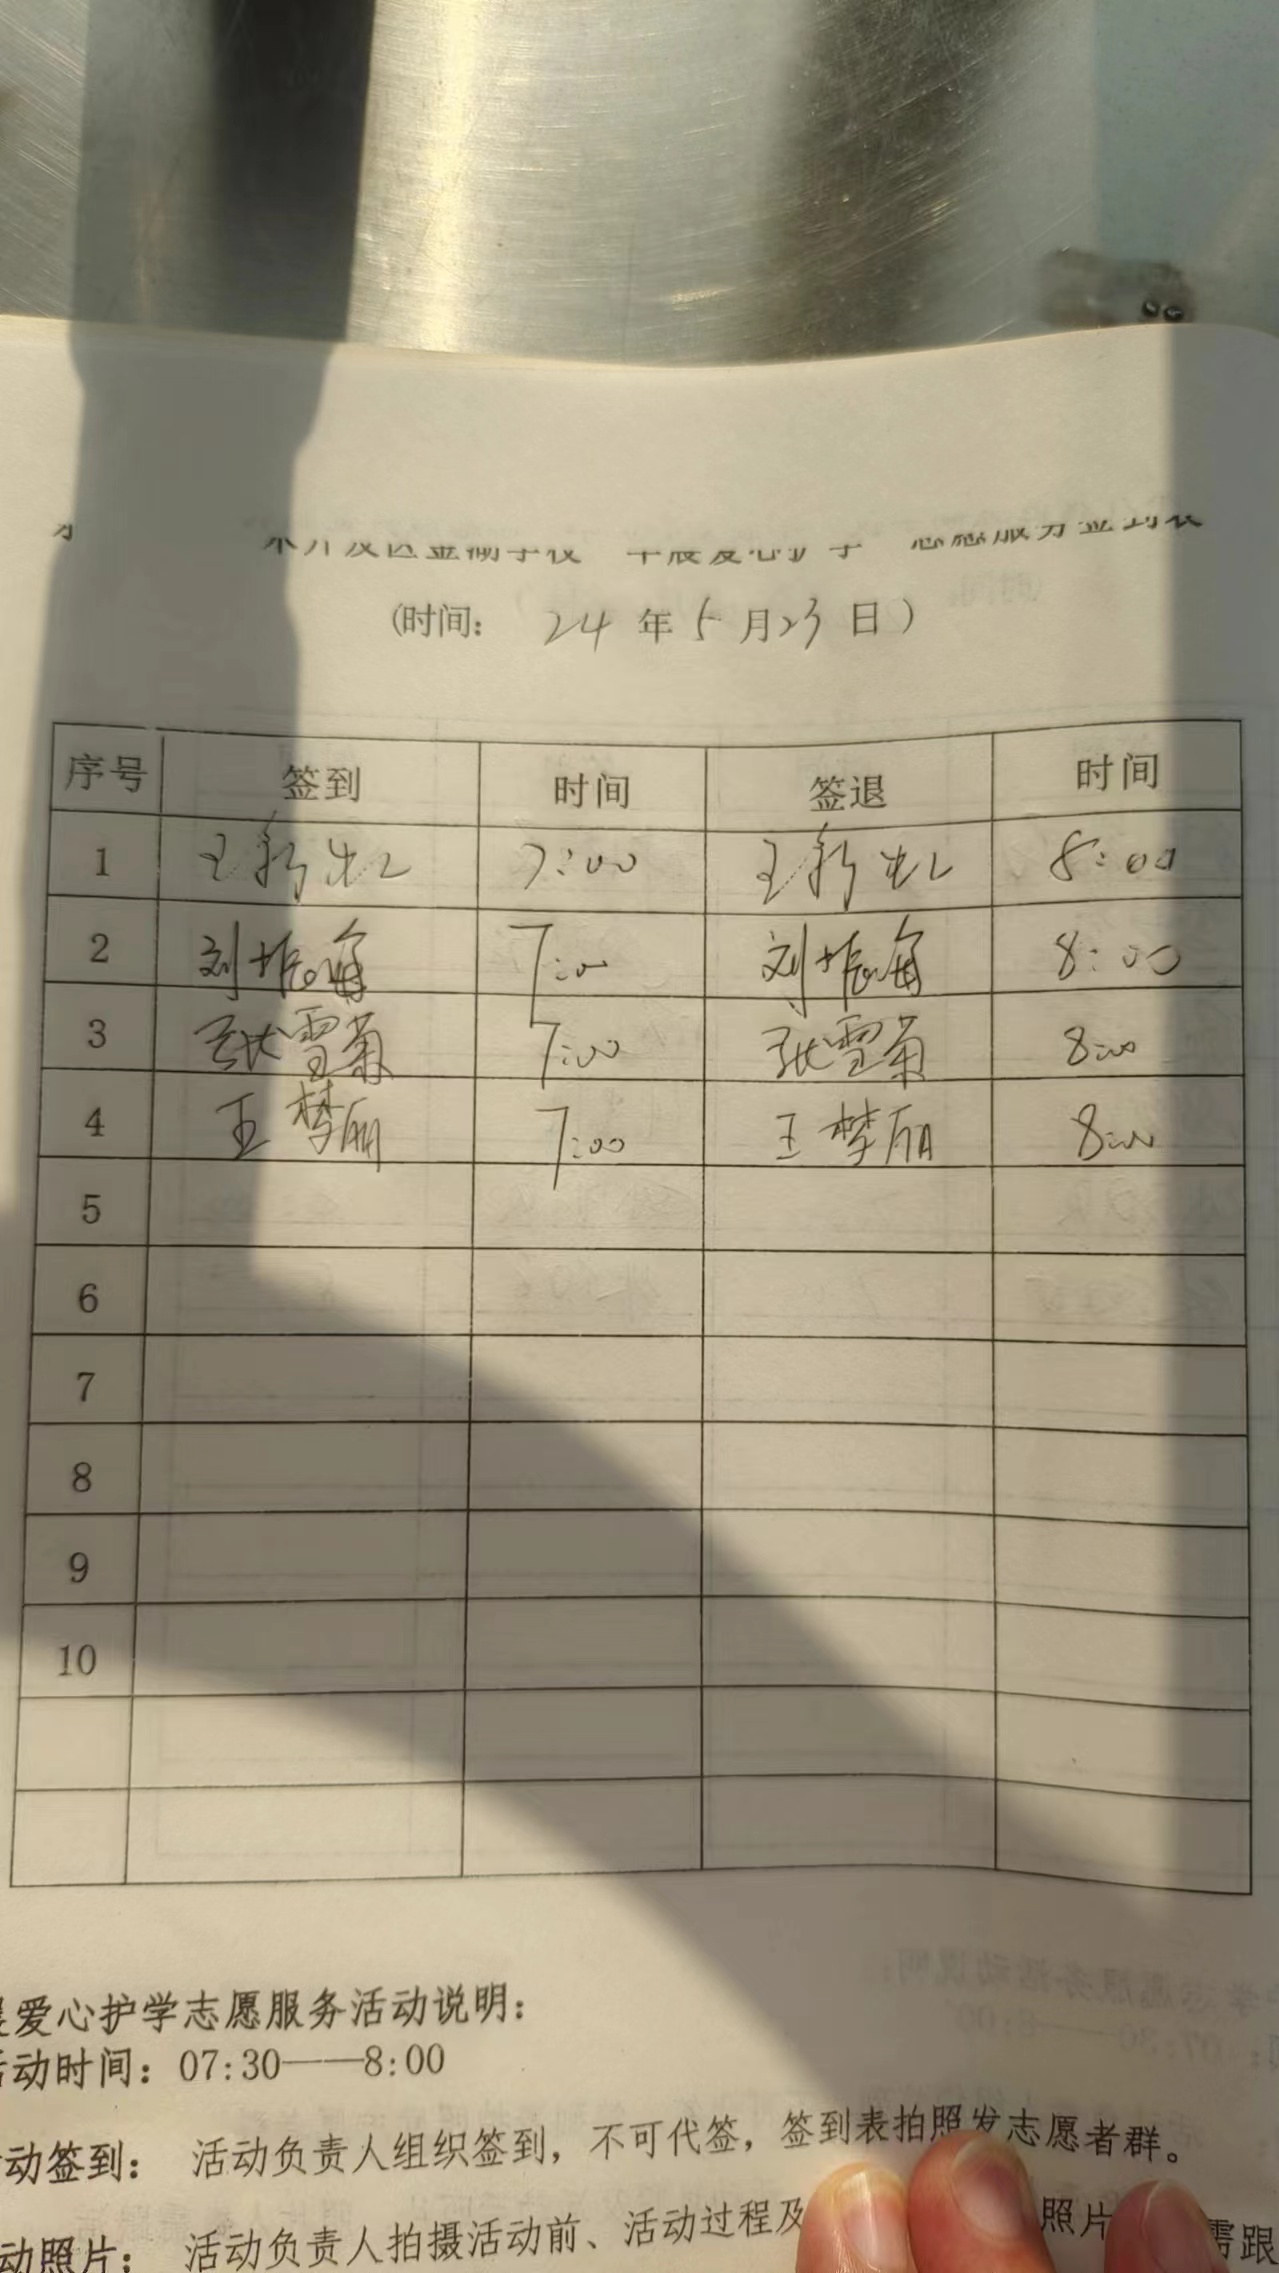 开发区金湖学校 早晨爱心护学 志愿服务签到表
(时间: 24 年 5 月 23 日)
序号 签到 时间 签退 时间
1 王新虹 7:00 王新虹 8:00
2 刘振海 7:00 刘振海 8:00
3 张雪菊 7:00 张雪菊 8:00
4 王梦丽 7:00 王梦丽 8:00
5
6
7
8
9
10
爱心护学志愿服务活动说明:
活动时间: 07:30——8:00
动签到: 活动负责人组织签到, 不可代签, 签到表拍照发志愿者群。
动照片: 活动负责人拍摄活动前、活动过程及 照片 需跟